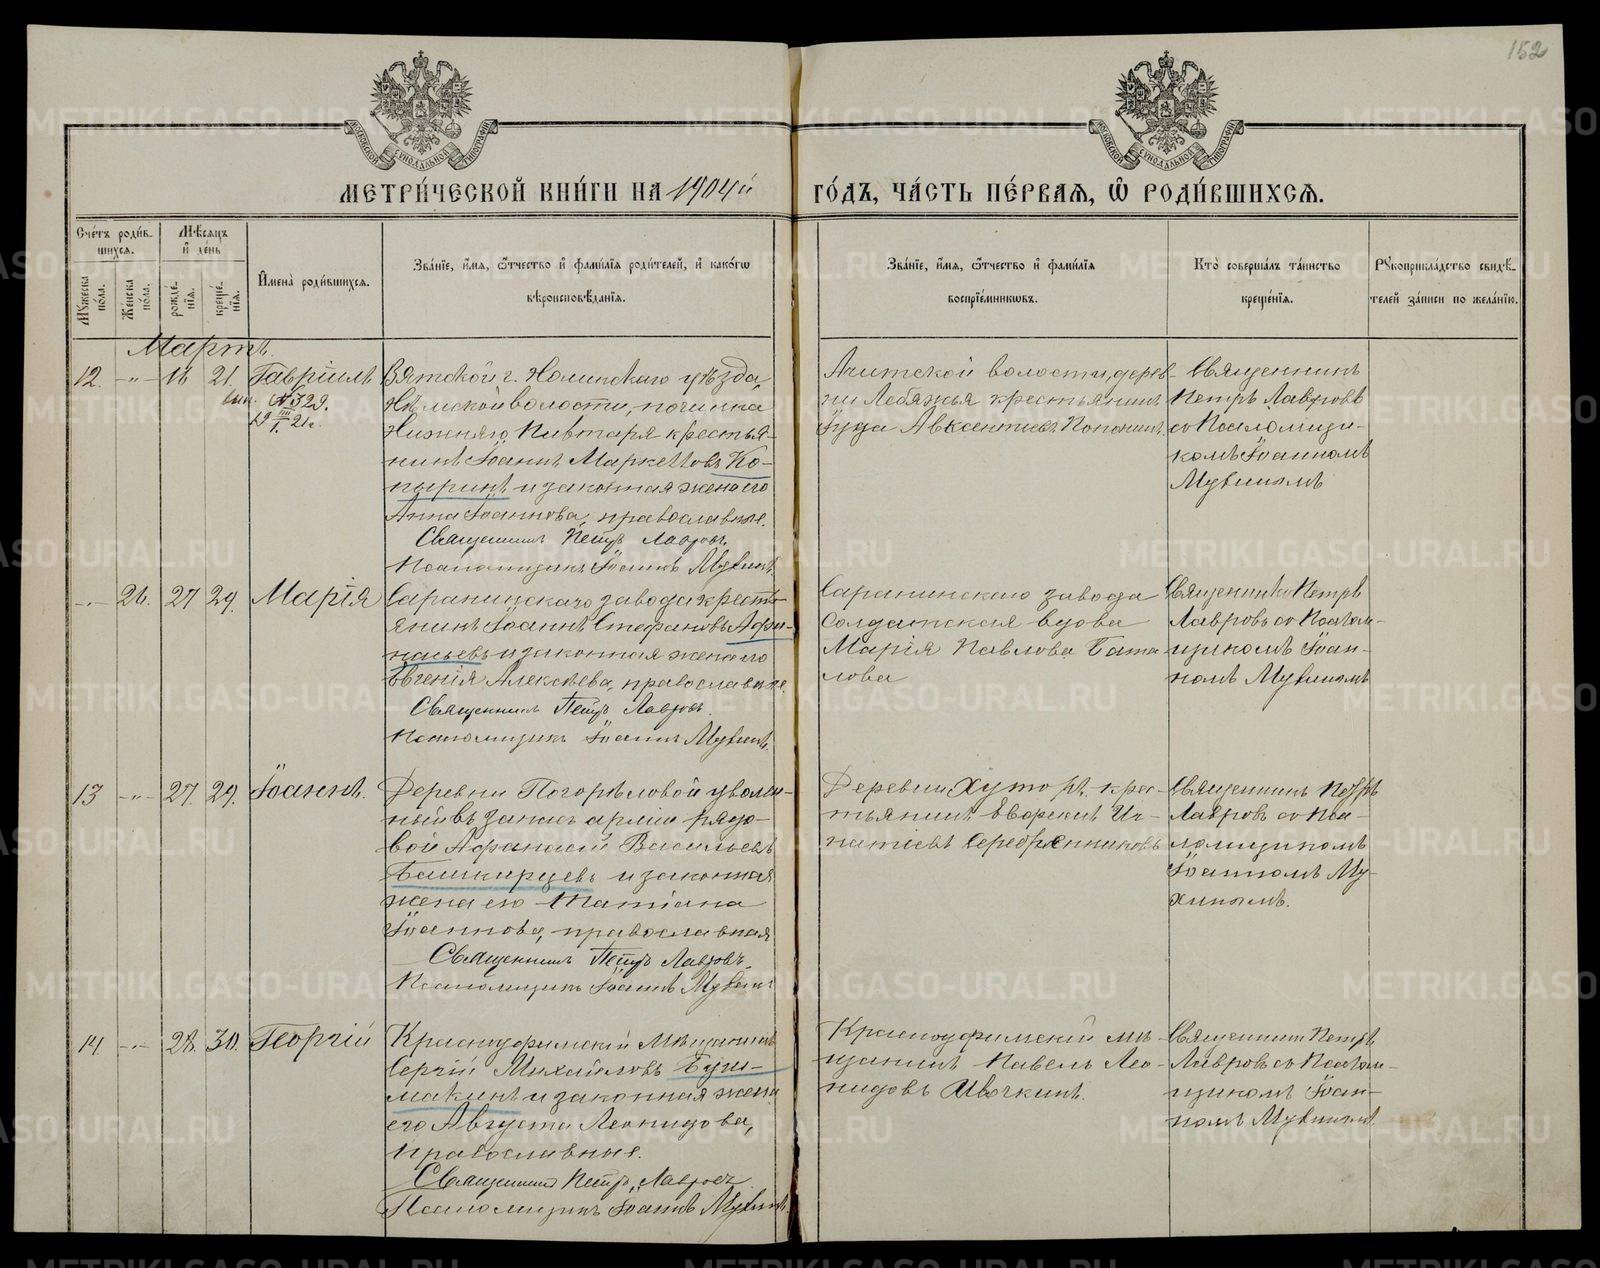 152
МЕТРИ́ЧЕСКОЙ КНИ́ГИ НА 1904й ГО́ДЪ, ЧА́СТЬ ПЕ́РВАѦ, Ѿ РОДИ́ВШИХСѦ.
Сче́тъ роди́вшихсѧ.
Мꙋжеска по́ла.
Же́нска по́ла.
Мѣ́сѧцъ и҆ де́нь
рожде́нїѧ.
креще́нїѧ.
И҆мена̀ роди́вшихсѧ.
Зва́нїе, и҆́мѧ, ѻ҆́тчество и҆ фами́лїѧ роди́телей, и҆ како́гѡ
вѣроисповѣ́данїѧ.
Зва́нїе, и҆́мѧ, ѻ҆́тчество и҆ фами́лїѧ
воспрїе́мникѡвъ.
Кто̀ соверша́лъ та́инство
креще́нїѧ.
Рꙋкоприкла́дство свидѣ́телей за́писи по жела́нїю.
Мартъ.
12. -"- 16 21. Гавріилъ
вып. №329.
21г.
Вятской г. Нолинскаго уѣзда,
Нѣмской волости, починка
Нижняго крестья-
нинъ Іоаннъ Маркелловъ Ко-
пыринъ и законная жена его
Анна Іоаннова, православные.
Священникъ Петръ Лавровъ.
Псаломщикъ Іоаннъ Мухинъ.
Ачитской волости, дерев-
ни Лебяжья крестьянинъ
Іуда Авксентіевъ
Священникъ
Петръ Лавровъ
со Псаломщи-
комъ Іоанномъ
Мухинымъ
-"- 26. 27 29. Марія
Саранинскаго завода кресть-
янинъ Іоаннъ Стефановъ Афа-
насьевъ и законная жена его
Евгенія Алексѣева, православные.
Священникъ Петръ Лавровъ.
Псаломщикъ Іоаннъ Мухинъ.
Саранинскаго завода
солдатская вдова
Марія Павлова Бата-
лова
Священникъ Петръ
Лавровъ со Псалом-
щикомъ Іоан-
номъ Мухинымъ
13 -"- 27. 29. Іоаннъ.
Деревни Погорѣловой уволен-
ный въ запасъ арміи рядо-
вой Афанасій Васильевъ
Башкирцевъ и законная
жена его Татіана
Іоаннова, православная
Священникъ Петръ Лавровъ.
Псаломщикъ Іоаннъ Мухинъ
Деревни Хуторъ кре-
стьянинъ Евсрений Иг-
натіевъ Серебренниковъ
Священникъ Петръ
Лавровъ со Пса-
ломщикомъ
Іоанномъ Му-
хинымъ.
14. -"- 28. 30. Георгій
Красноуфимскій мѣщанинъ
Сергій Михайловъ Бузи-
макинъ и законная жена
его Августа Леонидова,
православные.
Священникъ Петръ Лавровъ
Псаломщикъ Іоаннъ Мухинъ.
Красноуфимскій мѣ-
щанинъ Павелъ Лео-
нидовъ Ивочкинъ.
Священникъ Петръ
Лавровъ съ Псалом-
щикомъ Іоан-
номъ Мухинымъ